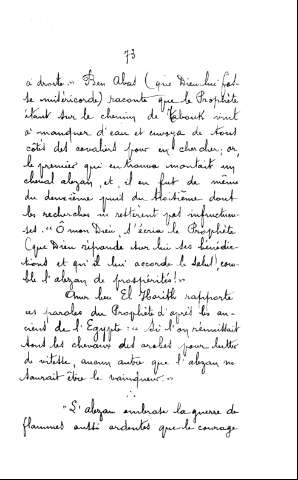 73
à droite." Ben Abas (que Dieu lui fas-
se miséricorde) raconte que le Prophète
étant sur le chemin de Tabouk vint
à manquer d'eau et envoya de tous
côtés des cavaliers pour en chercher; or,
le premier qui en trouva montait un
cheval alezan, et, il en fut de même
du deuxième puis du troisième dont
les recherches ne restèrent pas infructueu-
ses. "Ô mon Dieu, s'écria le Prophète
(que Dieu répande sur lui ses bénédic-
tions et qu'il lui accorde le salut) com-
ble l'alezan de prospérités!"
Omar ben El Harith rapporte
ces paroles du Prophète d'après les an-
ciens de l'Egypte: "Si l'on réunissait
tous les chevaux des arabes pour lutter
de vitesse, aucun autre que l'alezan ne
saurait être le vainqueur."
"L'alezan embrase la guerre de
flammes aussi ardentes que le courage